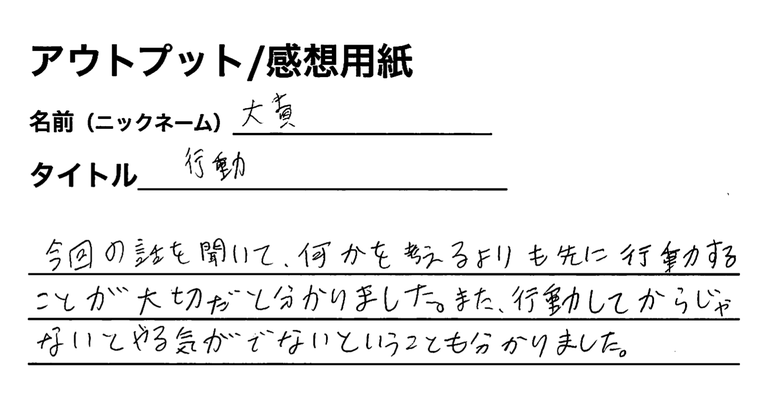 アウトプット/感想用紙
名前（ニックネーム） 大真
タイトル 行動
今回の話を聞いて、何かを考えるよりも先に行動する
ことが大切だと分かりました。また、行動してからじゃ
ないとやる気がでないということも分かりました。